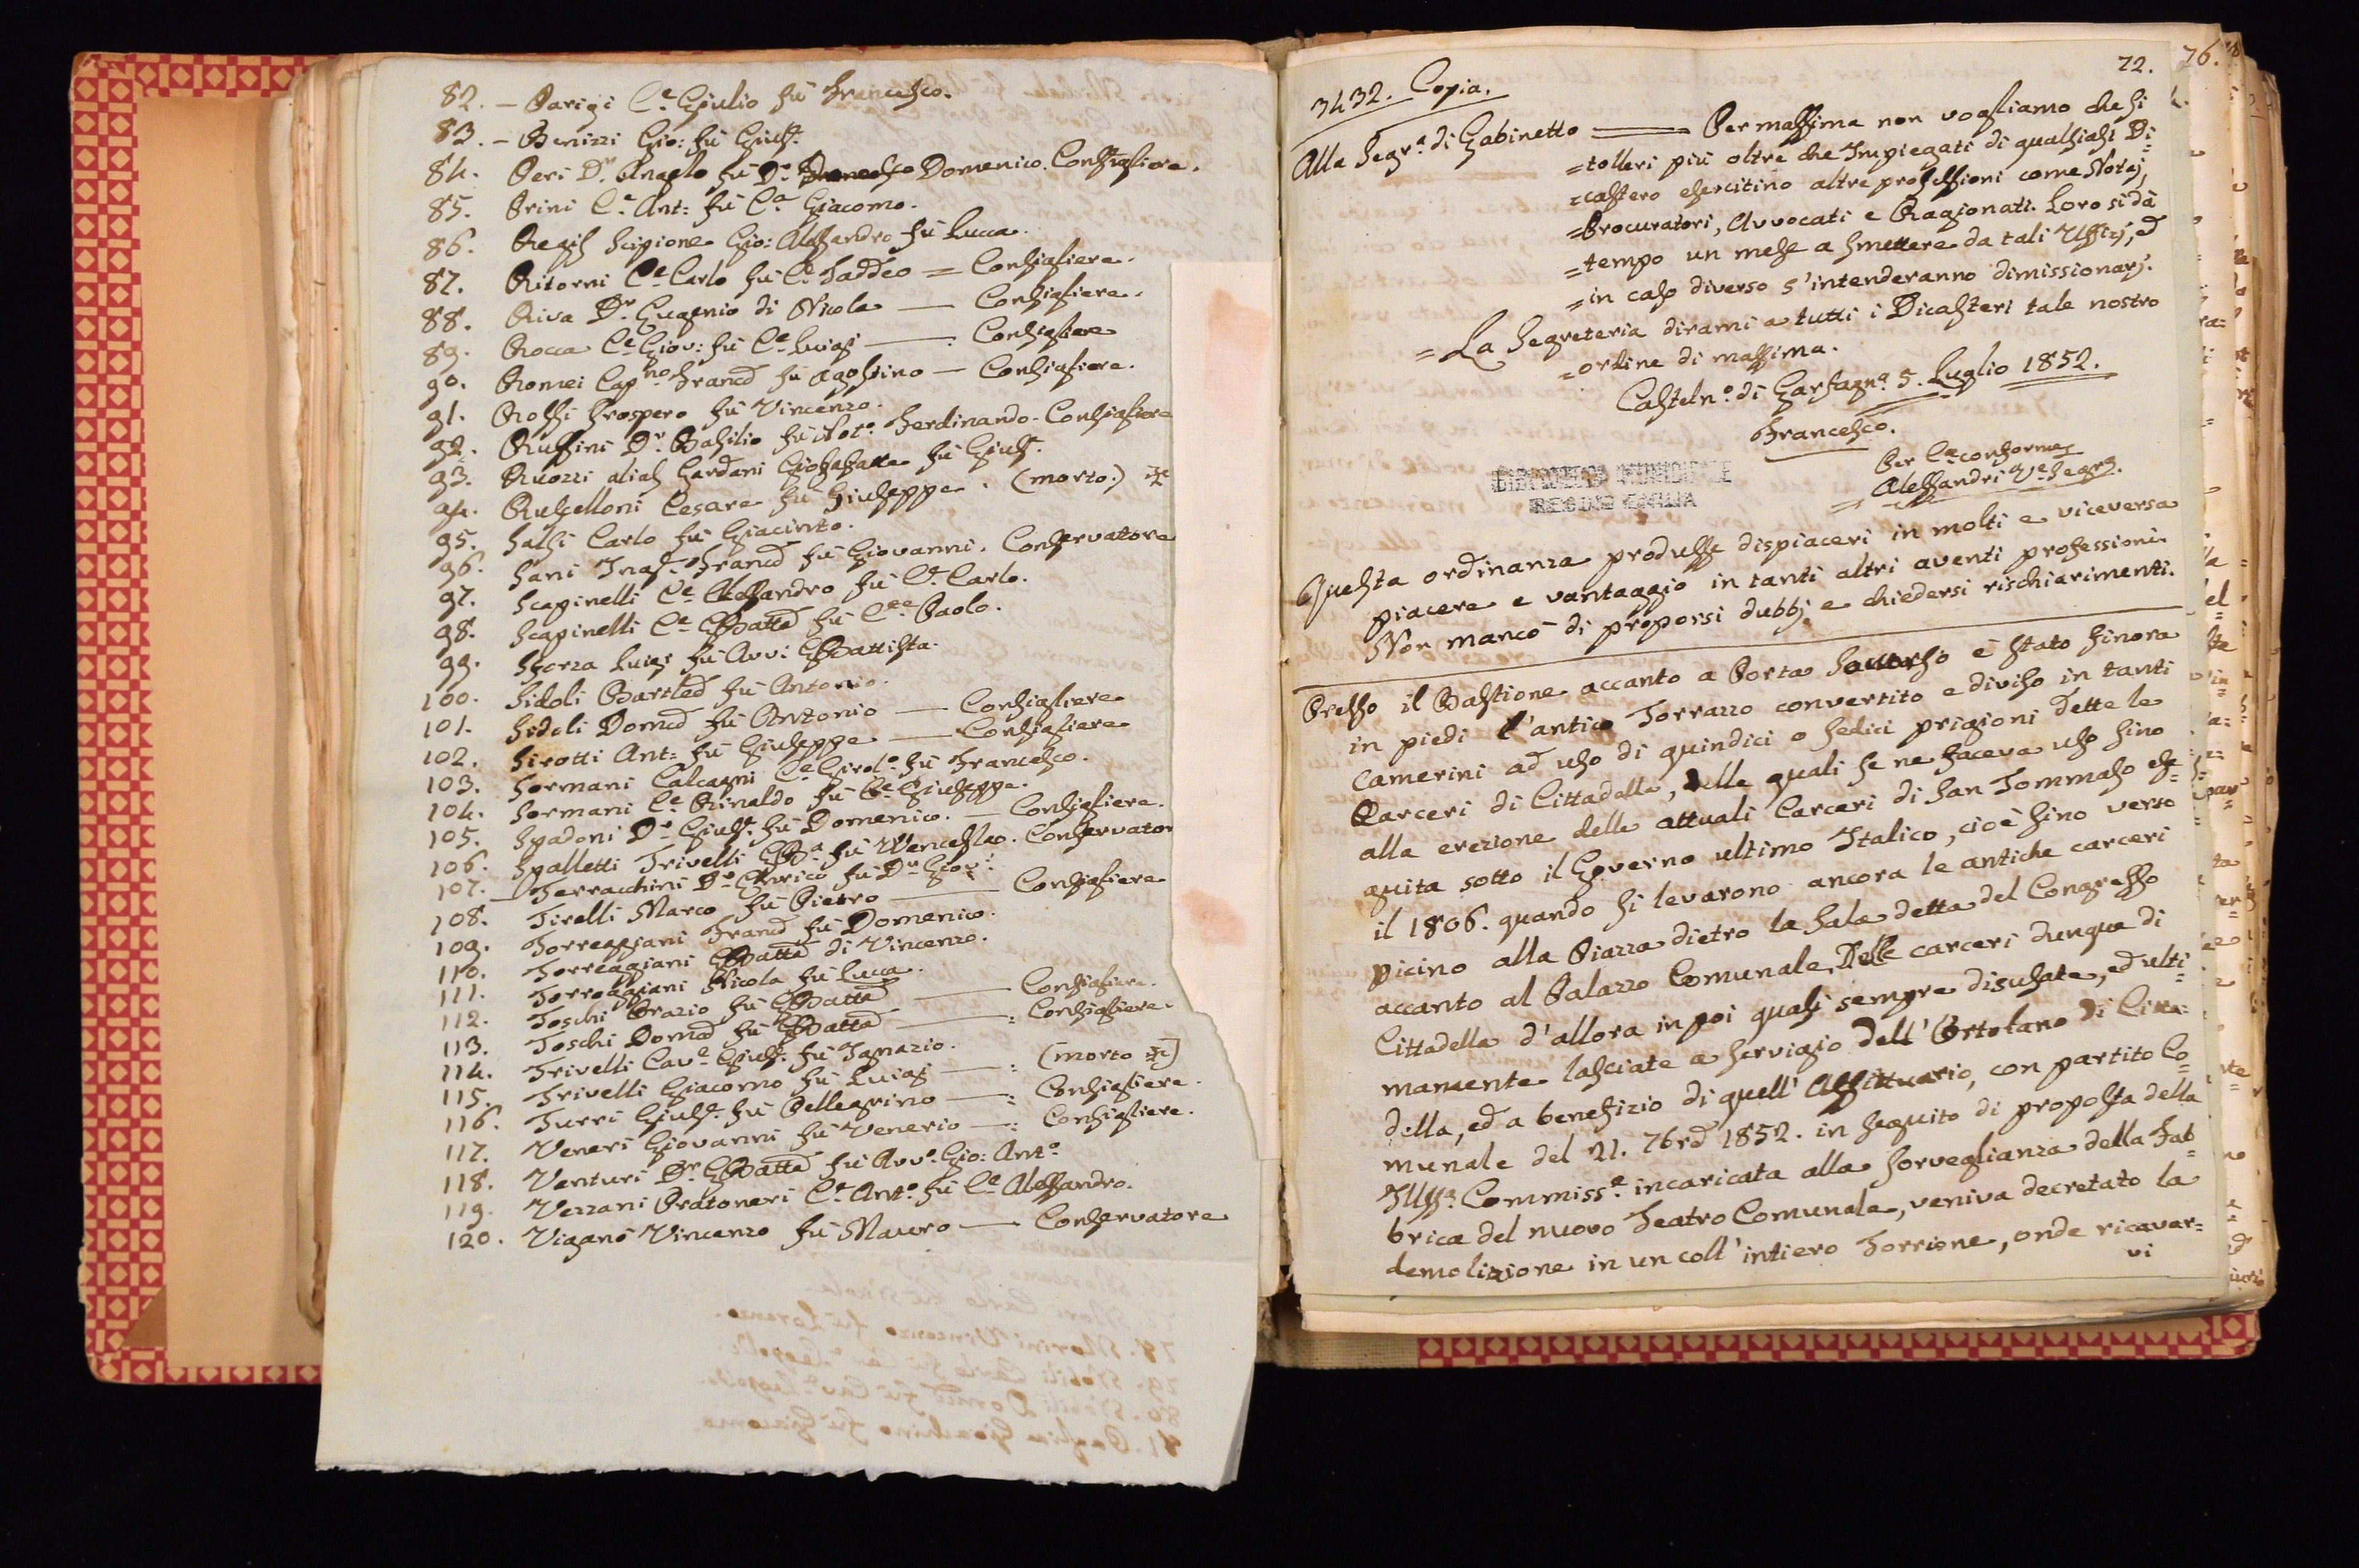 82. — Parigi C.e Giulio fù Francesco.
83. — Benizzi Gio: fù Gius.e
84. Peri D.r Angelo fù D.r Domenico. Consigliere.
85. Prini C.e Ant: fù C.e Giacomo.
86. Regis Scipione Gio: Alessandro fù Lucca.
87. Ritorni C.e Carlo fù C.e Taddeo = Consigliere.
88. Riva D.r Eugenio di Nicola — Consigliere.
89. Rocca C.e Giov: fù C.e Luigi — : Consigliere
90. Romei Cap.no Franc.o fù Agostino — Consigliere.
91. Rossi Prospero fù Vincenzo.
92. Ruffini D.r Basilio fù Not.o Ferdinando - Consigliere
93. Ruozzi alias Gardani Giosafatte fù Gius.e
94. Ruscelloni Cesare fù Giuseppe. (morto.)
95. Salsi Carlo fù Giacinto.
96. Sani Ing.e Franc.o fù Giovanni. Conservatore
97. Scapinelli C.e Alessandro fù C.e Carlo.
98. Scapinelli C.e GBatta fù C.e Paolo.
99. Sforza Luigi fù Avv: GBattista.
100. Sidoli Bartleo fù Antonio.
101. Sidoli Domco fù Antonio — Consigliere
102. Sirotti Ant: fù Giuseppe — Consigliere
103. Sormani Calcagni C.e Girol.o fù Francesco.
104. Sormani C.e Rinaldo fù C.e Giuseppe.
105. Spadoni D.r Gius.e fù Domenico. — Consigliere.
106. Spalletti Trivelli GB.a fù Venceslao. Conservator
107. — Terrachini D.r Enrico fù D.r Giov:
108. Tirelli Marco fù Pietro — Consigliere
109. Torreggiani Franco fù Domenico.
110. Torreggiani GBatta di Vincenzo.
111. Torreggiani Nicola fù Luca.
112. Toschi Orazio fù GBatta — Consigliere.
113. Toschi Domco fù GBatta — : Consigliere.
114. Trivelli Cav.e Gius.e fù Ignazio.
115. Trivelli Giacomo fù Luigi — : (morto)
116. Turri Gius.e fù Pellegrino — : Consigliere.
117. Veneri Giovanni fù Venerio — : Consigliere.
118. Venturi D.r GBatta fù Avv.o Gio: Ant.o
119. Vezzani Pratoneri C.e Ant.o fù C.e Alessandro.
120. Viganò Vincenzo fù Mauro — Conservatore
72. 76.
3432. Copia.
Alla Segr.a di Gabinetto = Per massima non vogliamo che si
=tolleri più oltre che Impiegati di qualsiasi Di=
=castero esercitino altre professioni come Notaj,
=Procuratori, Avvocati e Ragionati. Loro si dà
=tempo un mese a smettere da tali Uffizj, ed
=in caso diverso s'intenderanno dimissionarj.
=La Segreteria dirami a tutti i Dicasteri tale nostro
=ordine di massima.
Casteln.o di Garfagn.a 5. Luglio 1852.
Francesco.
Per C.a conforme
= Alessandri V.e Segr.o
BIBLIOTECA MUNICIPALE
REGGIO EMILIA
Questa ordinanza produsse dispiaceri in molti e viceversa
piacere e vantaggio in tanti altri aventi professioni.
Non mancò di proporsi dubbj e chiedersi rischiarimenti.
Presso il Bastione accanto a Porta è stato finora
in piedi l'antico Torrazzo convertito e diviso in tanti
Camerini ad uso di quindici o sedici prigioni dette le
Carceri di Cittadella, delle quali se ne faceva uso sino
alla erezione delle attuali Carceri di San Tommaso ese=
guita sotto il Governo ultimo Italico, cioè sino verso
il 1806. quando si levarono ancora le antiche carceri
vicino alla Piazza dietro la Sala detta del Congresso
accanto al Palazzo Comunale. Delle carceri dunque di
Cittadella d'allora in poi quasi sempre disusate, ed ulti=
mamente lasciate a servigio dell'Ortolano di Citta=
della, ed a benefizio di quell'Affittuario, con partito Co=
munale del 21. 7brd 1852. in seguito di proposta della
Illss.a Commiss.e incaricata alla sorveglianza della Fab=
brica del nuovo Teatro Comunale, veniva decretato la
demolizione in un coll'intiero Torrione, onde ricavar=
vi